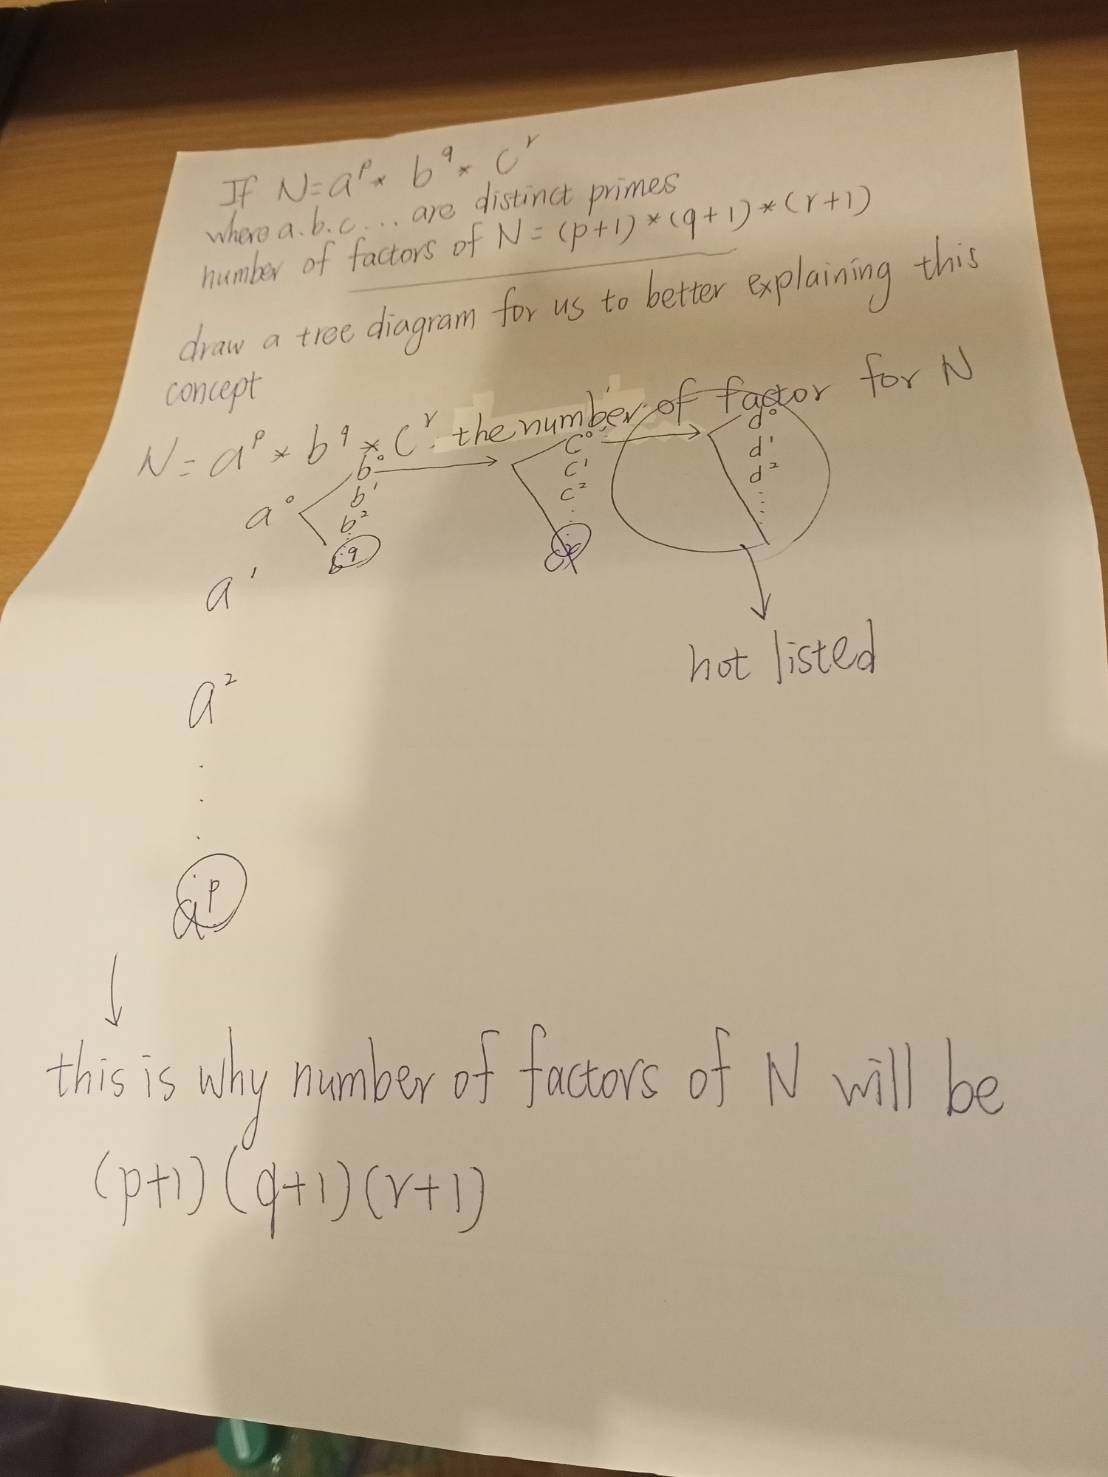 If N=a^p * b^q * c^r
where a.b.c... are distinct primes
number of factors of N = (p+1)*(q+1)*(r+1)
draw a tree diagram for us to better explaining this
concept
N = a^p * b^q * c^r. the number of factor for N
a^0 b^0 c^0 d^0
b^1 c^1 d^1
b^2 c^2 d^2
b^q c^r
a^1
a^2
not listed
a^p
this is why number of factors of N will be
(p+1)(q+1)(r+1)